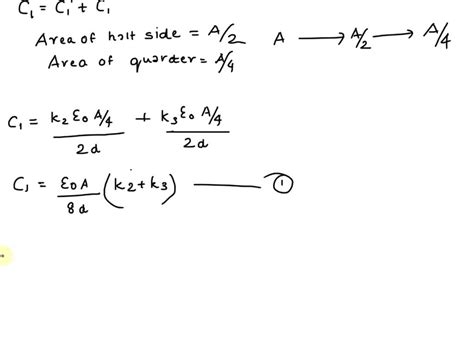 C₁ = C₁' + C₁
Area of halt side = A/2 A ⟶ A/2 ⟶ A/4
Area of quarder = A/4
C₁ = k₂ ε₀ A/4 / 2d + k₃ ε₀ A/4 / 2d
C₁ = ε₀A / 8d (k₂ + k₃) —— ①